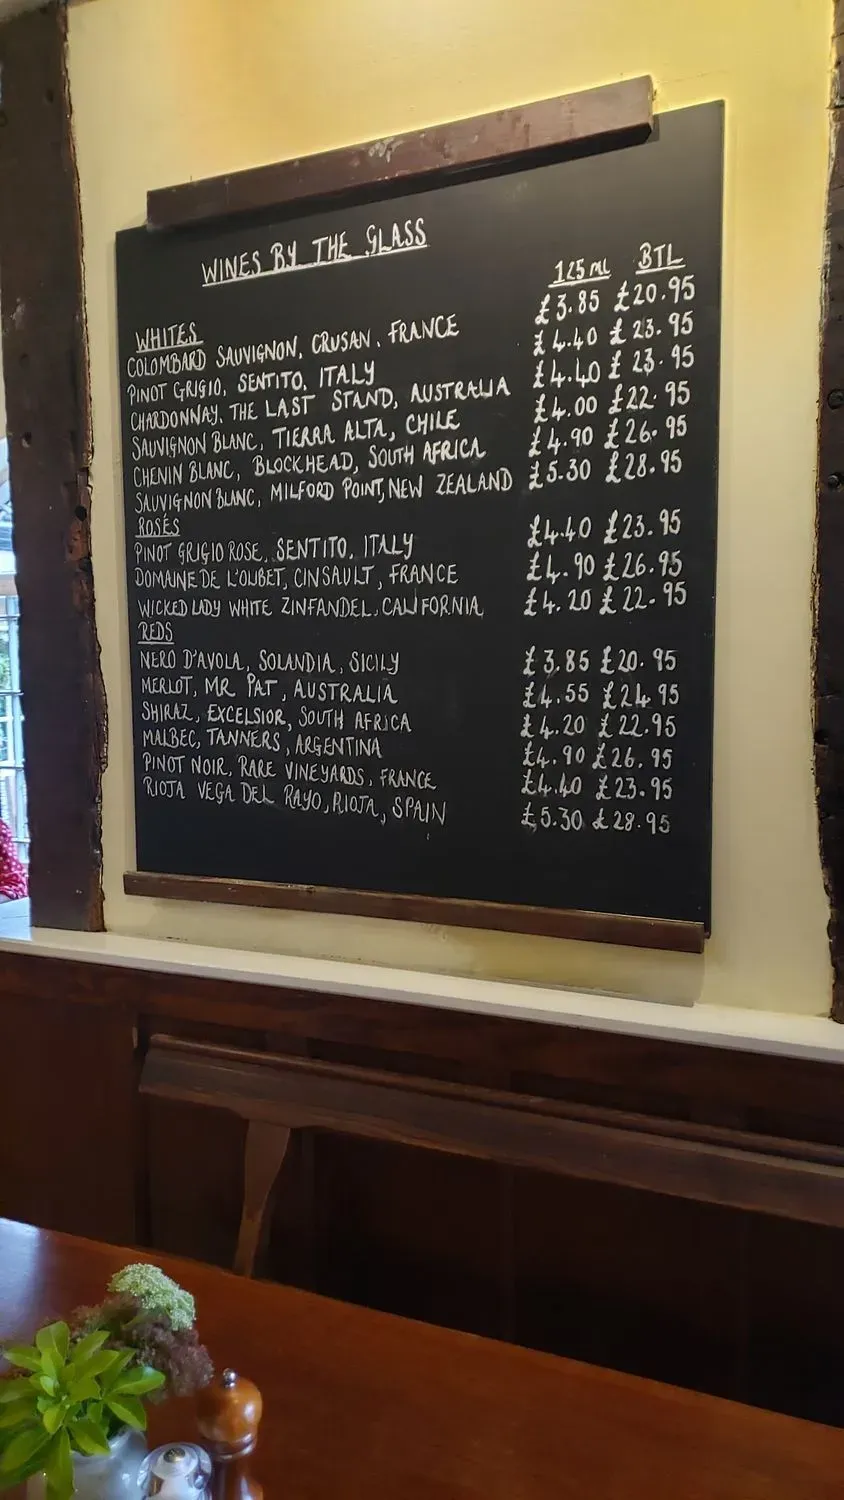 WINES BY THE GLASS
125 ml BTL
WHITES
COLOMBARD SAUVIGNON, CRUSAN, FRANCE £3.85 £20.95
PINOT GRIGIO, SENTITO, ITALY £4.40 £23.95
CHARDONNAY, THE LAST STAND, AUSTRALIA £4.40 £23.95
SAUVIGNON BLANC, TIERRA ALTA, CHILE £4.00 £22.95
CHENIN BLANC, BLOCKHEAD, SOUTH AFRICA £4.90 £26.95
SAUVIGNON BLANC, MILFORD POINT, NEW ZEALAND £5.30 £28.95
ROSÉS
PINOT GRIGIO ROSE, SENTITO, ITALY £4.40 £23.95
DOMAINE DE L'OLIBET, CINSAULT, FRANCE £4.90 £26.95
WICKED LADY WHITE ZINFANDEL, CALIFORNIA £4.20 £22.95
REDS
NERO D'AVOLA, SOLANDIA, SICILY £3.85 £20.95
MERLOT, MR PAT, AUSTRALIA £4.55 £24.95
SHIRAZ, EXCELSIOR, SOUTH AFRICA £4.20 £22.95
MALBEC, TANNERS, ARGENTINA £4.90 £26.95
PINOT NOIR, RARE VINEYARDS, FRANCE £4.40 £23.95
RIOJA VEGA DEL RAYO, RIOJA, SPAIN £5.30 £28.95